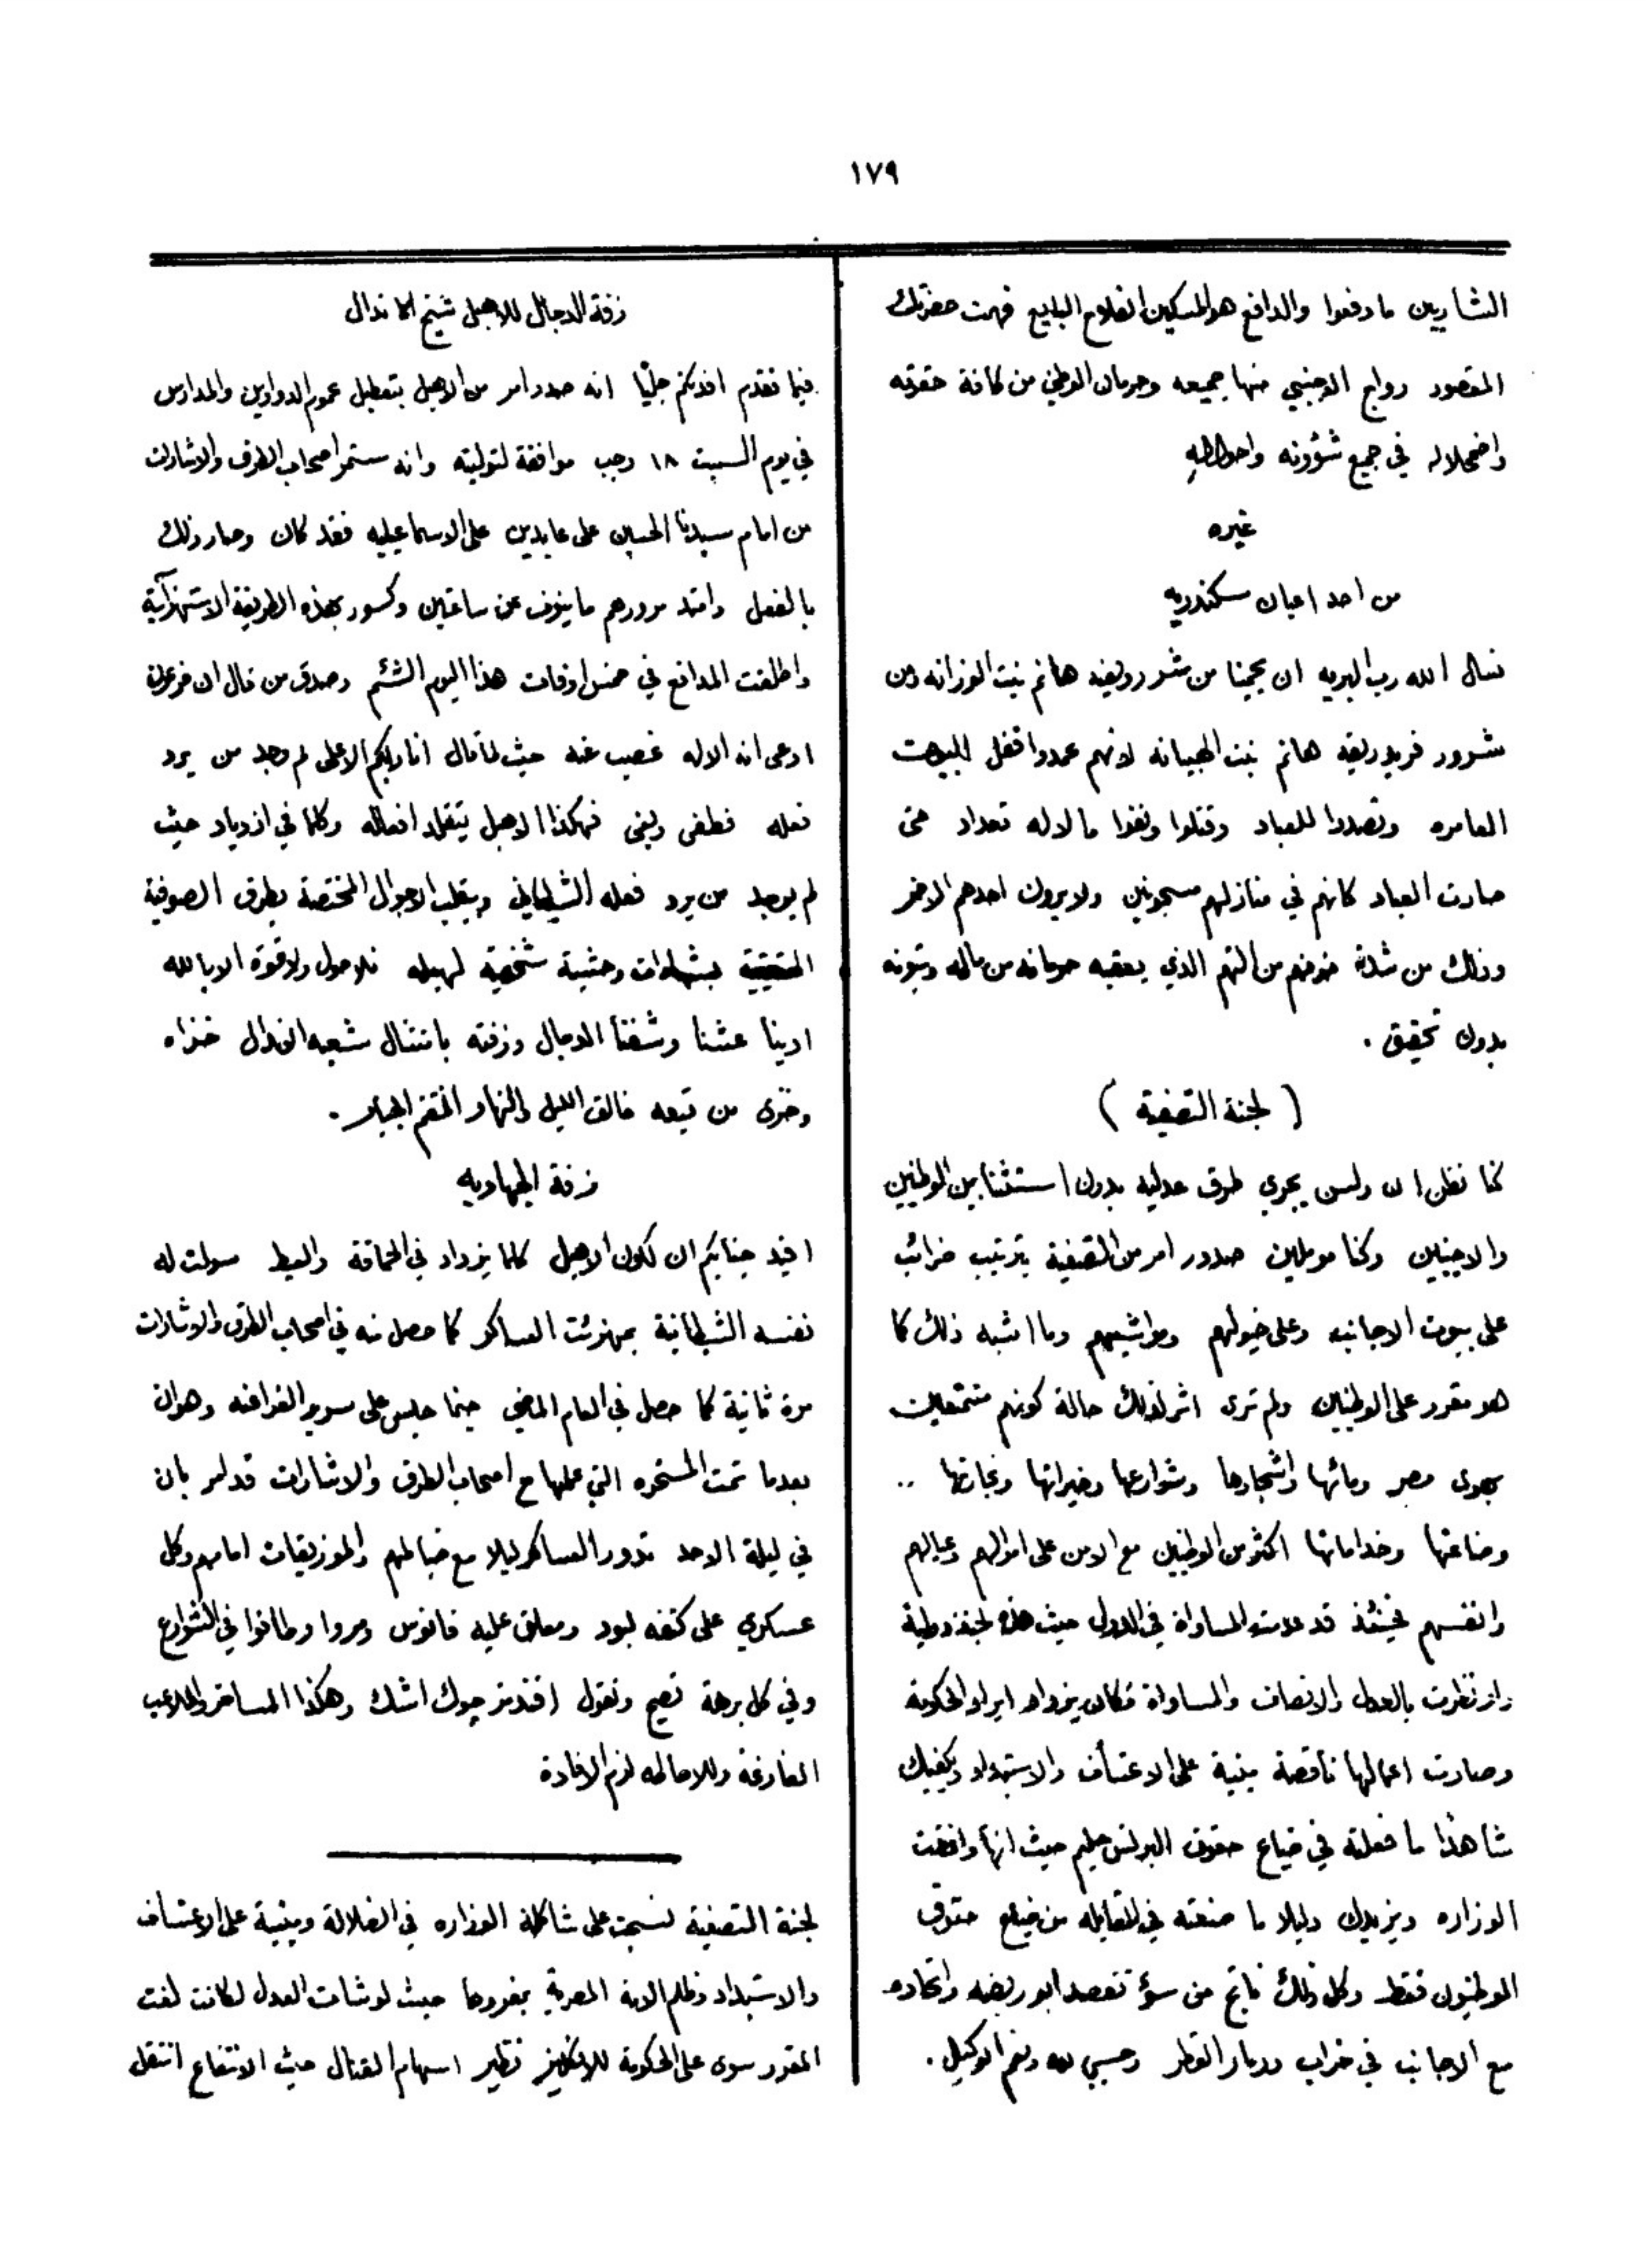 ١٧٩
الشاريين ما دفعوا والدافع هو المسكين الفلاح البايع فهمت حضرتك
المقصود رواج الاجنبي منها جميعه وحرمان الوطني من كافة حقوقه
واضمحلاله في جميع شؤونه واحواله
غيره
من احد اعيان سكندريه
نسال الله رب البريه ان يحمينا من شر روفيه هانم بنت الوزانه ومن
شرور فريد ريقه هانم بنت الجبانه لانهم عمدوا قفل البيوت
العامره وتصددوا للعباد وقتلوا ونفوا ما لا له تعداد حتى
صارت العباد كانهم في منازلهم مسجونين ولا يرون احدهم الاخر
وذلك من شدة خوفهم من التهم الذي يعقبه حرمانه من ماله وبنونه
بدون تحقيق .
( لجنة التصفية )
كنا نظن ان ولسن يجري طرق عدليه بدون استثنا بين الوطنيين
والاجنبيين وكنا مومليين صدور امر من التصفية بترتيب ضرائب
على بيوت الاجانب وعلى خيولهم ومواشيهم وما اشبه ذلك كما
هو مقرر على الوطنيين ولم ترى اثر لذلك حالة كونهم متمتعين
بهوى مصر ومائها واشجارها وشوارعها وخيراتها وتجارتها ..
وصناعتها وخداماتها اكثر من الوطنيين مع الامن على اموالهم وعيالهم
وانفسهم فحينئذ قد عدمت المساواة في الدول حيث هذه لجنة دولية
واذ نظرت بالعدل والانصاف والمساواة فكان يزداد ايراد الحكومة
وصارت اعمالها ناقصة مبنية على الاعتساف والاستبداد ويكفيك
شاهدا ما فعلته في ضياع حقوق البرنس حليم حيث انها وافقت
الوزاره ويزيدك دليلا ما صنعته في المقابله من ضياع حقوق
الوطنيون فقط وكل ذلك ناتج من سوء تقصد ابو ريضه واتحاده
مع الاجانب في خراب ودمار القطر وحسبي الله ونعم الوكيل .
زفة الدجال للاهبل شيخ الاندال
فيما تقدم افدتكم جليًا انه صدر امر من الاهبل بتعطيل عموم الدواوين والمدارس
في يوم السبت ١٨ رجب موافقة لتوليته وانه ستمر اصحاب الطرق والاشارات
من امام سيدنا الحسين على عابدين على الاسماعيليه فقد كان وصار ذلك
بالفعل وامتد مرورهم ما ينوف عن ساعتين وكسور بهذه الطريقة الاستهزآئية
واطلقت المدافع في خمس اوقات هذا اليوم الشئم وصدق من قال ان فرعون
ادعى انه الاله غصب عنه حيث لما قال انا ربكم الاعلى لم وجد من يرد
فعله فطغى وبغى فهكذا الاهبل يتقلد افعاله وكلما في ازدياد حيث
لم يوجد من يرد فعله الشيطاني ويقلب الاحوال المختصة بطرق الصوفية
الحقيقية بشهادات وحشية شخصية لهبله فلا حول ولا قوة الا بالله
ادينا عشنا وشفنا الدجال وزفته بامتثال شعبه اندال خزاه
وخزى من تبعه خالق الليل والنهار المنتقم الجبار .
زفة الجهاديه
افيد جنابكم ان لكون الاهبل كلما يزداد في الحماقة والعبط سولت له
نفسه الشيطانية بمهزئت العساكر كما حصل منه في اصحاب الطرق والاشارات
مرة ثانية كما حصل في العام الماضي حينما جلس على سرير الفراعنه وهو ان
بعدما تمت المسخره التي عملها مع اصحاب الطرق والاشارات قد امر بان
في ليلة الاحد تدور العساكر ليلا مع ضباطهم والموزيقات امامهم وكل
عسكري على كتفه لبود ومعلق عليه فانوس ومروا وطافوا في الشوارع
وفي كل برهة تصيح وتقول افندمز چوك اشك وهكذا المساخر والملاعب
الفارغة وللاحاطه لزم الافادة
لجنة التصفية نسجت على شاكلة الوزاره في الضلالة ومبنية على الاعتساف
والاستبداد وظلم الامة المصرية بمفردها حيث لو شات العدل لكانت لغت
المقرر سوى على الحكومة للانكليز نظير اسهام القنال حيث الانتفاع انتقل